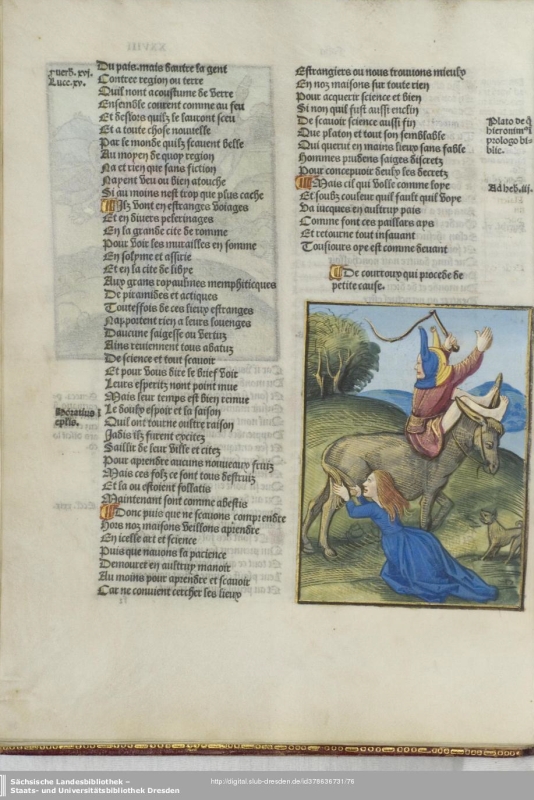 Du pais. mais d'autre la gent
Contree region ou terre
Quil nont acoustume de Verre
Ensemble courent comme au feu
Et desloꝛs quilz le sauront sceu
Et a toute chose nouuelle
Par le monde quilz scauent belle
Au moyen de quoy region
Na et rien que sans fiction
Nayent Veu ou bien atouche
Si au moins nest trop que plus cache
Ilz Vont en estranges Voiages
Et en diuers pelerinages
En la grande cite de romme
Pour Voir les murailles en somme
En solyme et assirie
Et en la cite de libye
Aux grans royaulmes memphiticques
De piramides et actiques
Touteffois de ces lieux estranges
Napportent rien a leurs louenges
Daucune saigesse ou Vertuz
Ains reuiennent tous abatuz
De science et tout scauoir
Et pour Vous dire le brief Voir
Leurs espritz nont point mue
Mais leur temps est bien remue
Le doulx espoir et la saison
Quil ont tourne oultre raison
Jadis ilz furent excitez
Saillir de leur Ville et citez
Pour aprendre aucuns nouueaux fruiz
Mais ces folz ce sont tous destruiz
Et la ou estoient follatis
Maintenant sont comme abestis
Donc puis que ne scauons comprendre
Hors noz maisons Veillons aprendre
En icelle art et science
Puis que nauons la pacience
Demourer en aultruy manoir
Au moins pour aprendre et scauoir
Car ne conuient cercher les lieux
Estrangiers ou nous trouuions mieulx
En noz maisons sur toute rien
Pour acquerir science et bien
Si non quil fust aussi enclin
De scauoir science aussi fin
Que platon et tout son semblable
Qui querut en mains lieux sans fable
Hommes prudens saiges discretz
Pour conceuoir deulx les decretz
Mais cil qui Volle comme loye
Et soubz couleur quil fault quil Voye
Va iucques en aultruy pais
Comme font ces paillars ays
Et retourne tout insauant
Tousiours oye est comme deuant
De courroux qui procede de
petite cause.
Luce. xv.
Plato de q̃
hieronimꝰ ĩ
prologo bi-
blie.
Ad heb. iij.
Horatius ĩ
eplis.
Sächsische Landesbibliothek –
Staats- und Universitätsbibliothek Dresden
http://digital.slub-dresden.de/id378636731/76